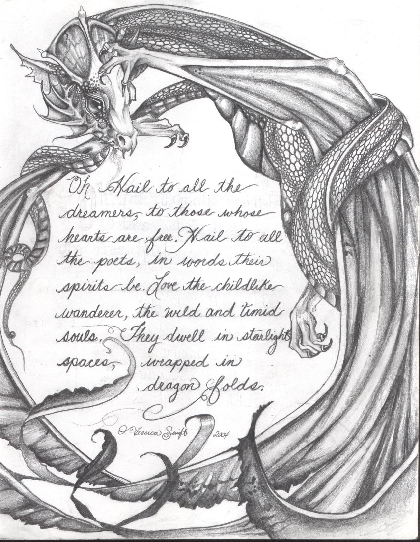 Oh Hail to all the
dreamers, to those whose
hearts are free. Hail to all
the poets, in words their
spirits be. Love the childlike
wanderer, the wild and timid
souls. They dwell in starlight
spaces, wrapped in
dragon folds.
© Jessica Swift 2004